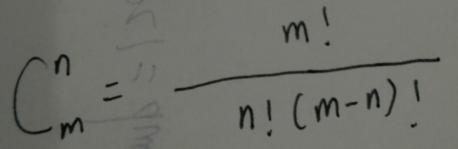 C_m^n = \frac{m!}{n!(m-n)!}